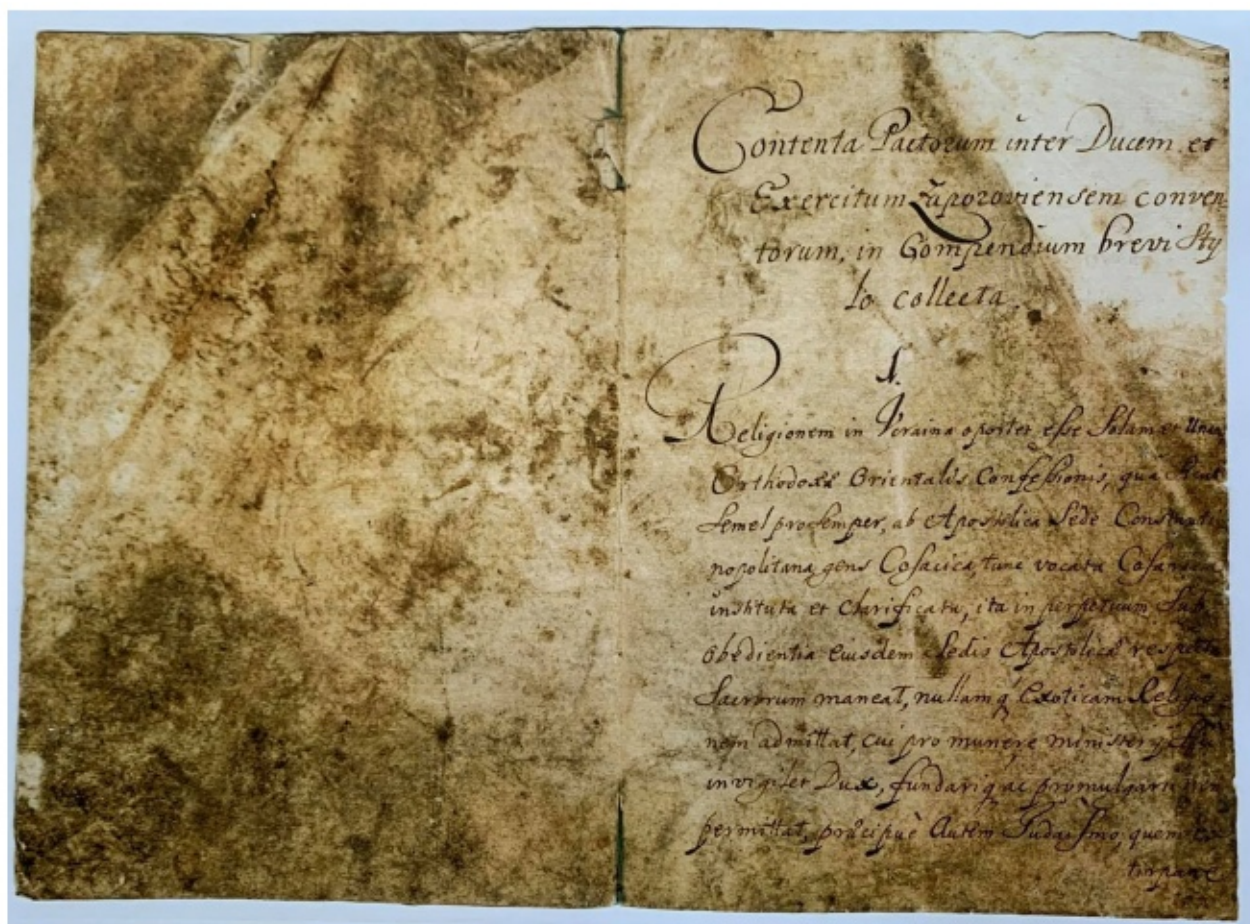 Contenta Pactorum inter Ducem et
Exercitum Zaporoviensem conven
torum, in Compendium brevi Sty
lo collecta.
1.
Religionem in Ucraina oportet esse Solam et
Orthodoxæ Orientalis Confessionis, quæ
Semel pro Semper, ab Apostolica Sede
nopolitana, gens Cosacica, tunc vocata
instituta et Clarificata, ita in perpetuum Sub
Obedientia Eiusdem Sedis Apostolicæ
Sacrorum maneat, nullamq Exoticam Religio
nem admittat, cui pro munere
invigilet Dux, fundariq ac promulgari non
permittat, præcipuè Autem Judaismo, quem
tirpare